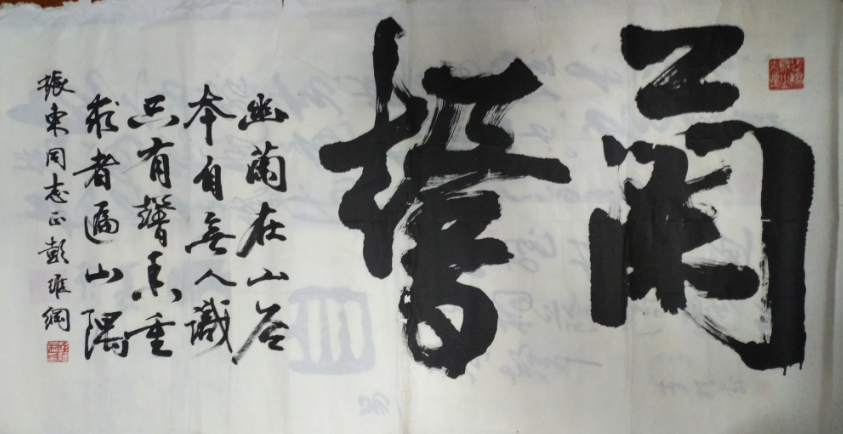 蘭馨
幽蘭在山谷
本自無人識
只有馨香重
求者遍山隅
振東同志正彭維綱